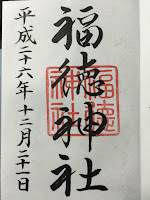 福徳神社
福徳神社
平成二十六年十二月二十一日